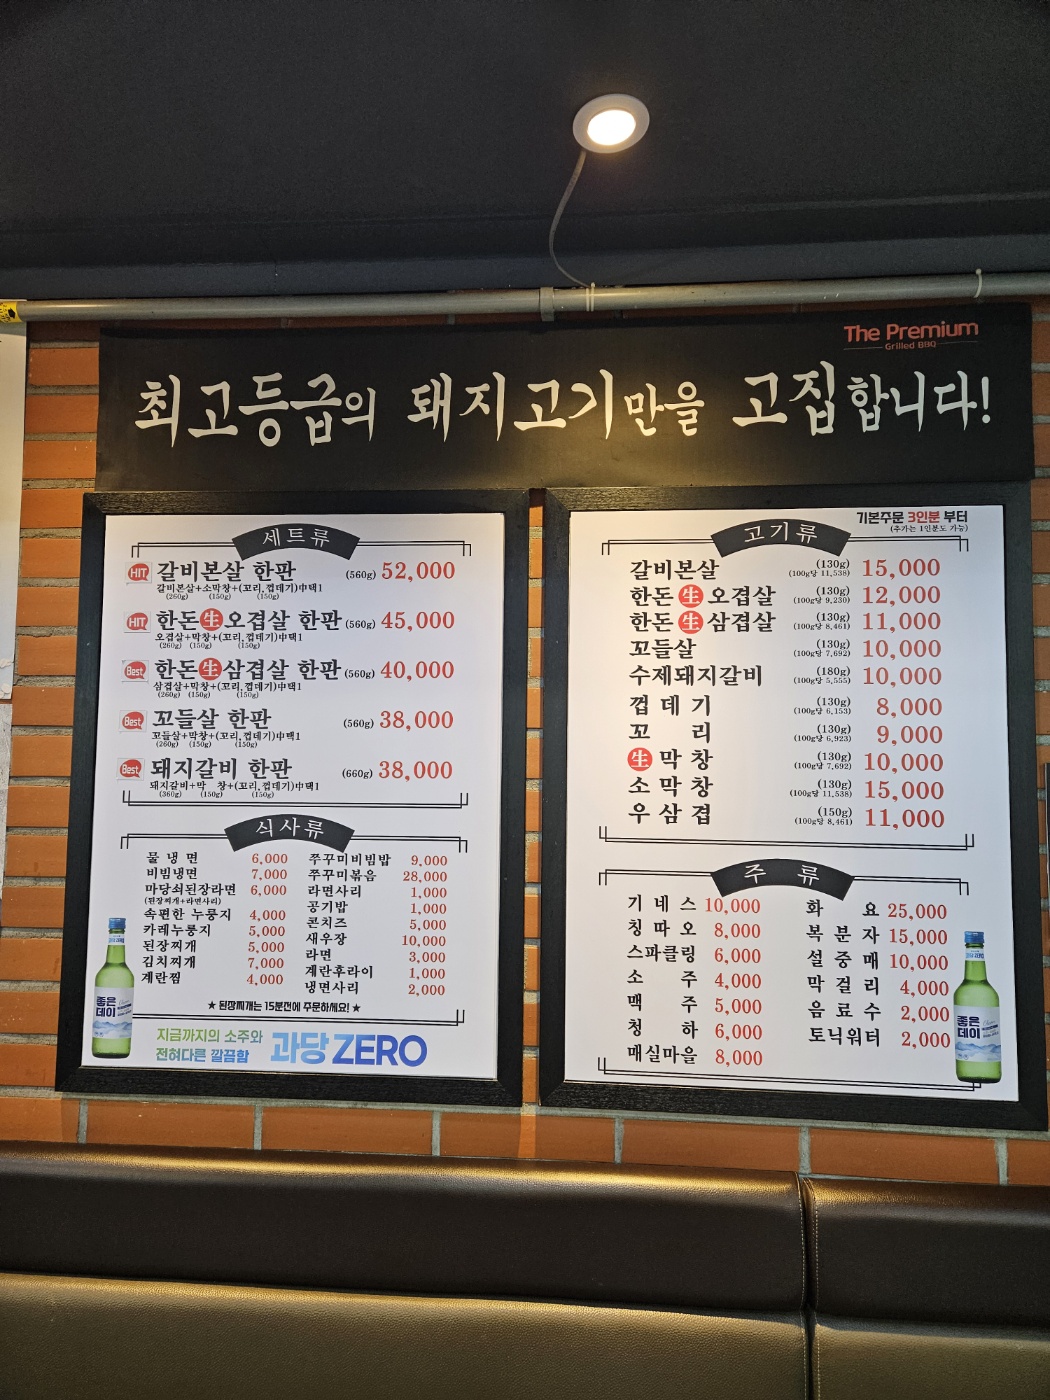 The Premium
Grilled BBQ
최고등급의 돼지고기만을 고집합니다!
세트류
HIT 갈비본살 한판 (560g) 52,000
갈비본살+소막창+(꼬리,껍데기)中택1
(260g) (150g) (150g)
HIT 한돈 生 오겹살 한판 (560g) 45,000
오겹살+막창+(꼬리,껍데기)中택1
(260g) (150g) (150g)
Best 한돈 生 삼겹살 한판 (560g) 40,000
삼겹살+막창+(꼬리,껍데기)中택1
(260g) (150g) (150g)
Best 꼬들살 한판 (560g) 38,000
꼬들살+막창+(꼬리,껍데기)中택1
(260g) (150g) (150g)
Best 돼지갈비 한판 (660g) 38,000
돼지갈비+막 창+(꼬리,껍데기)中택1
(360g) (150g) (150g)
식사류
물 냉 면 6,000
비빔냉면 7,000
마당쇠된장라면 6,000
(된장찌개+라면사리)
속편한 누룽지 4,000
카레누룽지 5,000
된장찌개 5,000
김치찌개 7,000
계란찜 4,000
쭈꾸미비빔밥 9,000
쭈꾸미볶음 28,000
라면사리 1,000
공기밥 1,000
콘치즈 5,000
새우장 10,000
라면 3,000
계란후라이 1,000
냉면사리 2,000
★ 된장찌개는 15분전에 주문하세요! ★
좋은
데이
지금까지의 소주와
전혀다른 깔끔함
과당 ZERO
기본주문 3인분 부터
(추가는 1인분도 가능)
고기류
갈비본살 (130g) 15,000
(100g당 11,538)
한돈 生 오겹살 (130g) 12,000
(100g당 9,230)
한돈 生 삼겹살 (130g) 11,000
(100g당 8,461)
꼬들살 (130g) 10,000
(100g당 7,692)
수제돼지갈비 (180g) 10,000
(100g당 5,555)
껍 데 기 (130g) 8,000
(100g당 6,153)
꼬 리 (130g) 9,000
(100g당 6,923)
生 막 창 (130g) 10,000
(100g당 7,692)
소 막 창 (130g) 15,000
(100g당 11,538)
우 삼 겹 (150g) 11,000
(100g당 8,461)
주 류
기 네 스 10,000
칭 따 오 8,000
스파클링 6,000
소 주 4,000
맥 주 5,000
청 하 6,000
매실마을 8,000
화 요 25,000
복 분 자 15,000
설 중 매 10,000
막 걸 리 4,000
음 료 수 2,000
토닉워터 2,000
좋은
데이